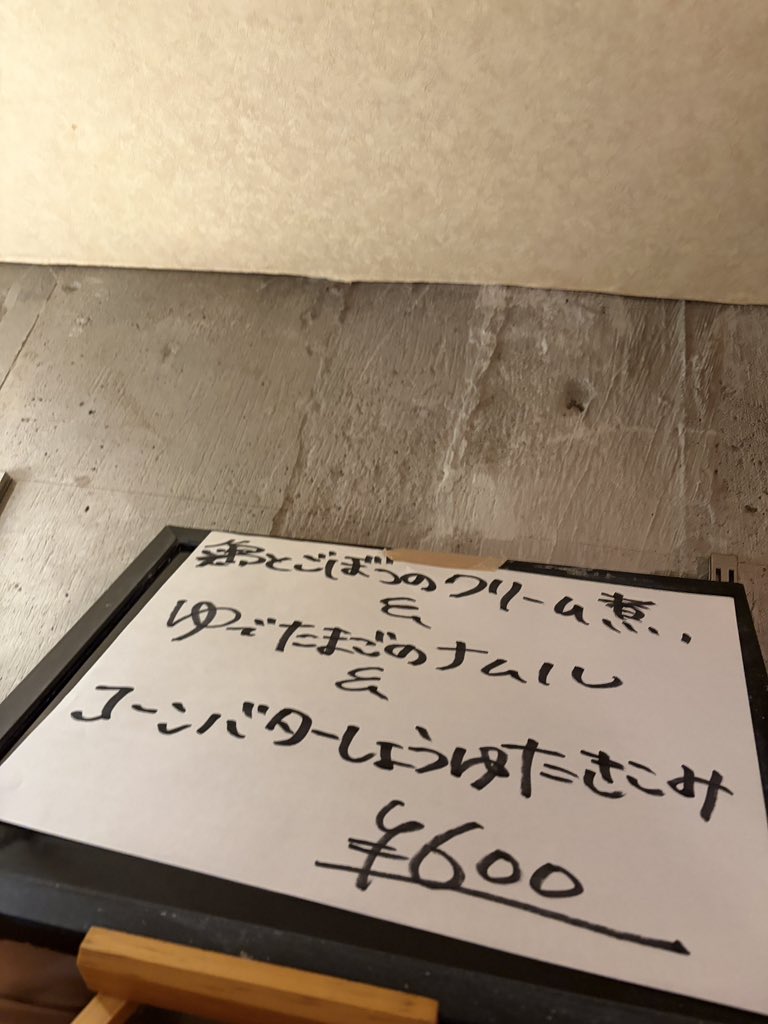 鶏とごぼうのクリーム煮
&
ゆでたまごのナムル
&
コーンバターしょうゆたきこみ
¥600